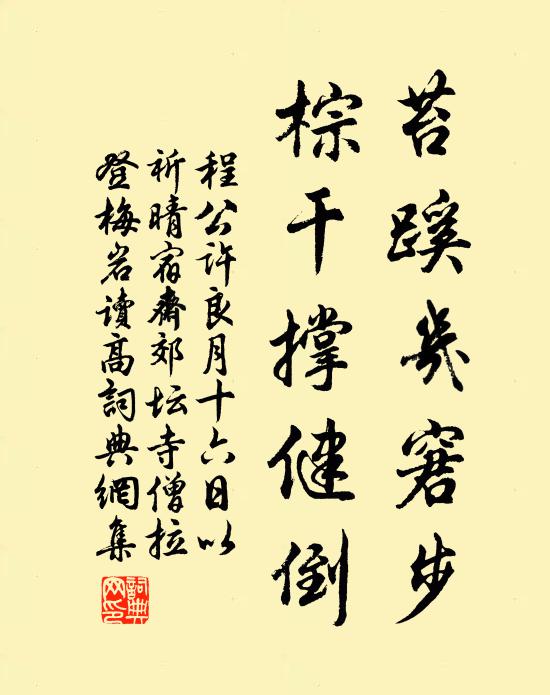 苔蹊几窘步
棕干撑健倒
程公许良月十六日以
祈晴宿斋郊坛寺僧拉
登梅岩读高詞典網集
詞典网印